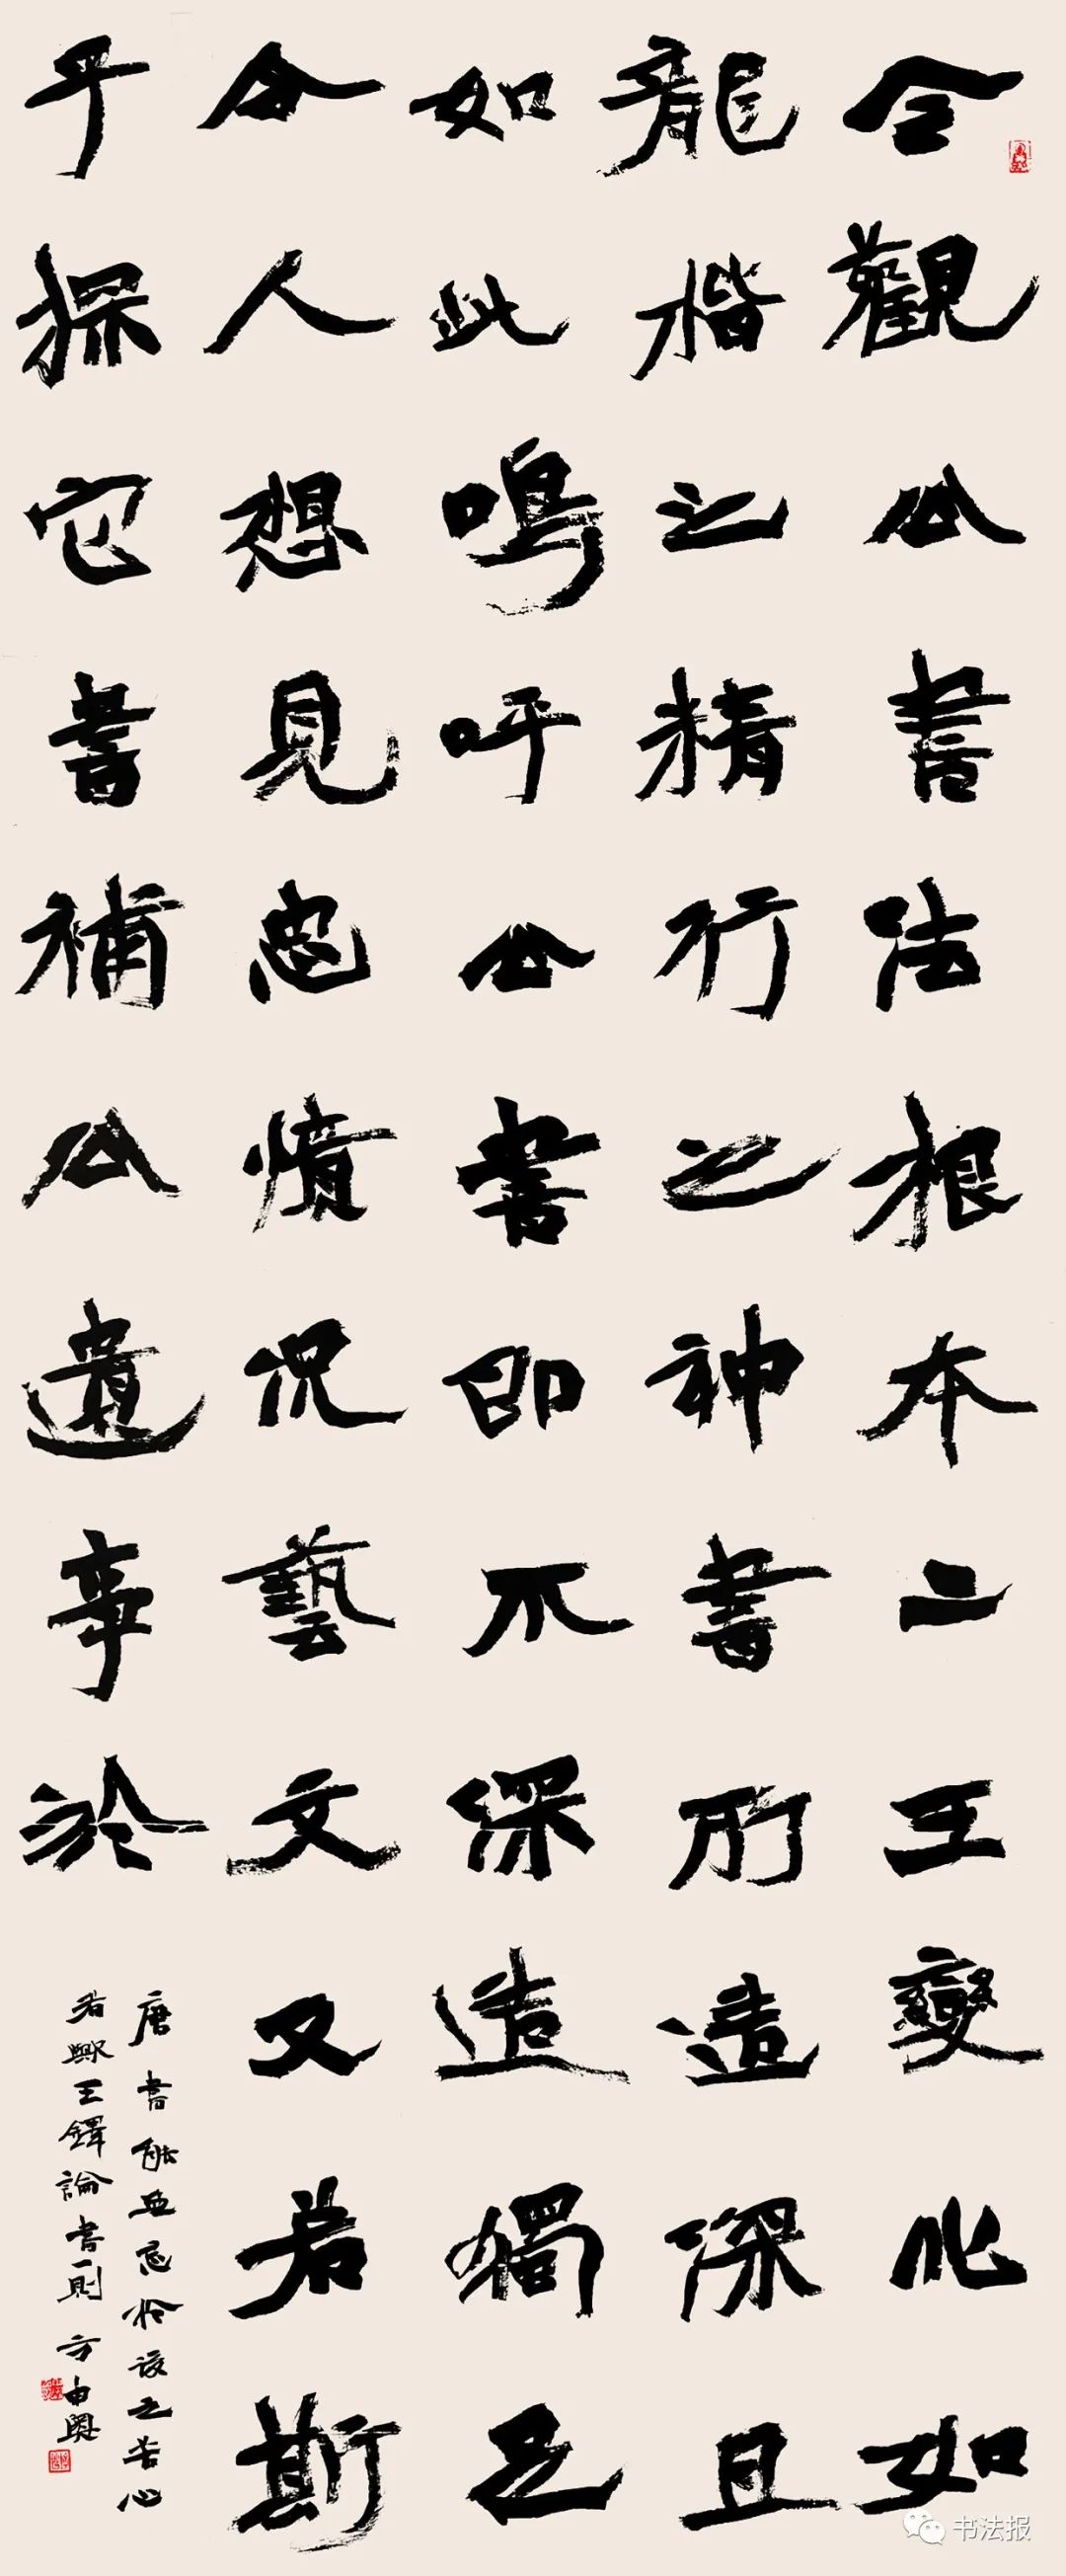 今觀公書法根本二王變化如
龍楷之精行之神書所造深且
如此嗚呼公書即不深造獨足
令人想見忠憤況藝文又若斯
乎探它書補公遺事於
唐書能無惓於設之苦心
者歟王鐸論書一則方由興
书法报